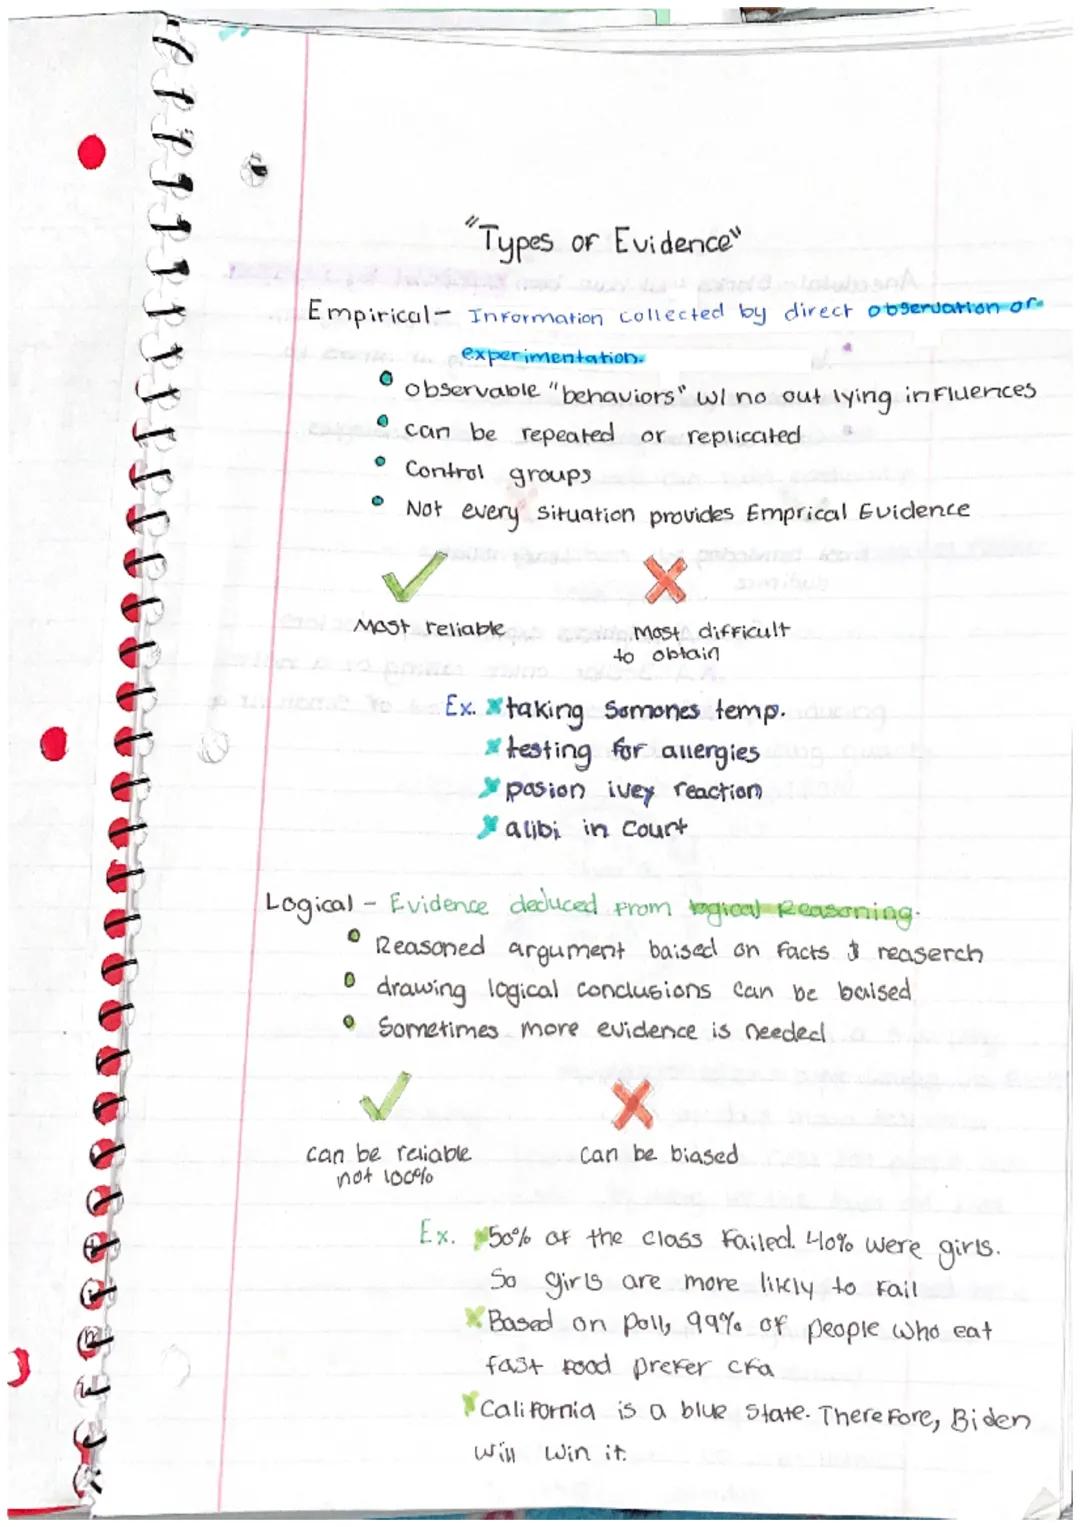 "Types of Evidence"
Empirical- Information collected by direct observation or
experimentation.
observable "behaviors" w/ no out lying influences
can be repeated or replicated
Control groups
Not every situation provides Emprical Evidence
Most reliable
Most difficult
to obtain
Ex. taking Somones temp.
testing for allergies
posion ivey reaction
alibi in court
Logical - Evidence deduced from logical Reasoning.
Reasoned argument baised on facts & reaserch
drawing logical conclusions can be baised
Sometimes more evidence is needed
can be reliable
not 100%
can be biased
Ex. 50% of the class failed. 40% were girls.
So girls are more likly to fail
Based on poll, 99% of people who eat
fast food prefer cfa
California is a blue state. Therefore, Biden
will win it.